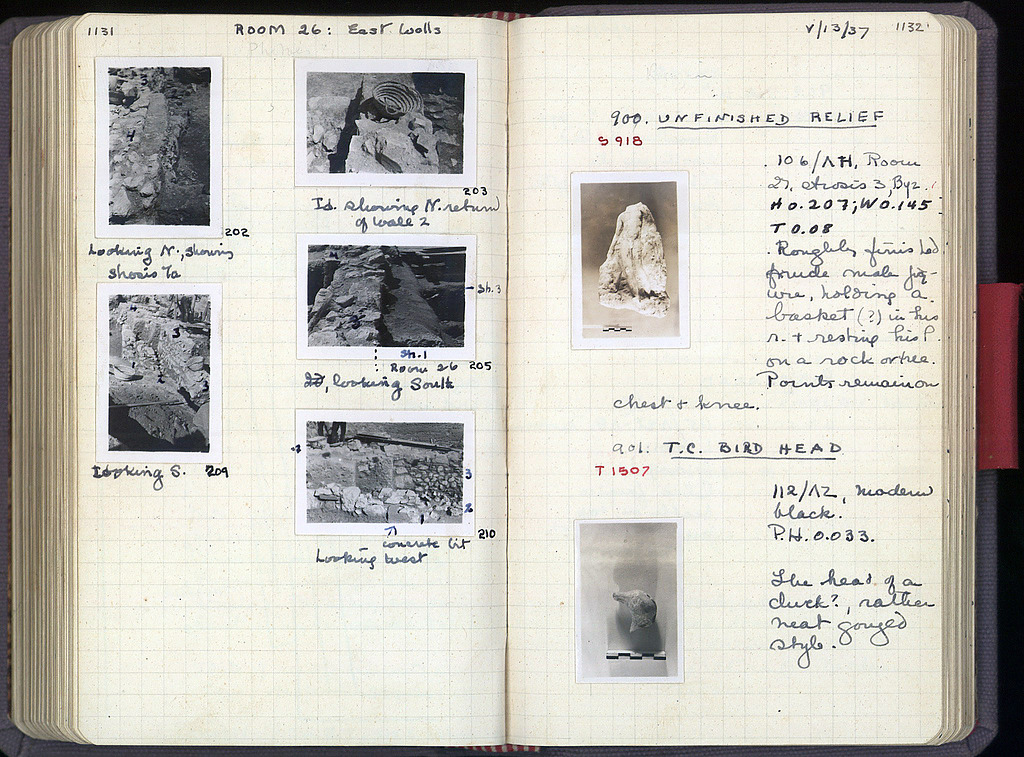 1131
ROOM 26: East Walls
202
Looking N., showing
stosis 7a
203
Id. showing N. return
of wall 2
Sh. 3
Sh. 1
Room 26
205
Id, looking South
Looking S.
209
3
2
210
concrete bit
Looking West
V/13/37
1132
900. UNFINISHED RELIEF
S 918
106/ΛΗ, Room
21, strosis 3, Byz.
H 0.207; W 0.145
T 0.08
Roughly finished
crude male fig-
ure, holding a
basket (?) in his
r. + resting his l.
on a rock or tree.
Points remain on
chest & knee.
901. T.C. BIRD HEAD
T 1507
112/ΛΖ, modern
black.
P.H. 0.033.
The head of a
duck?, rather
neat gouged
style.